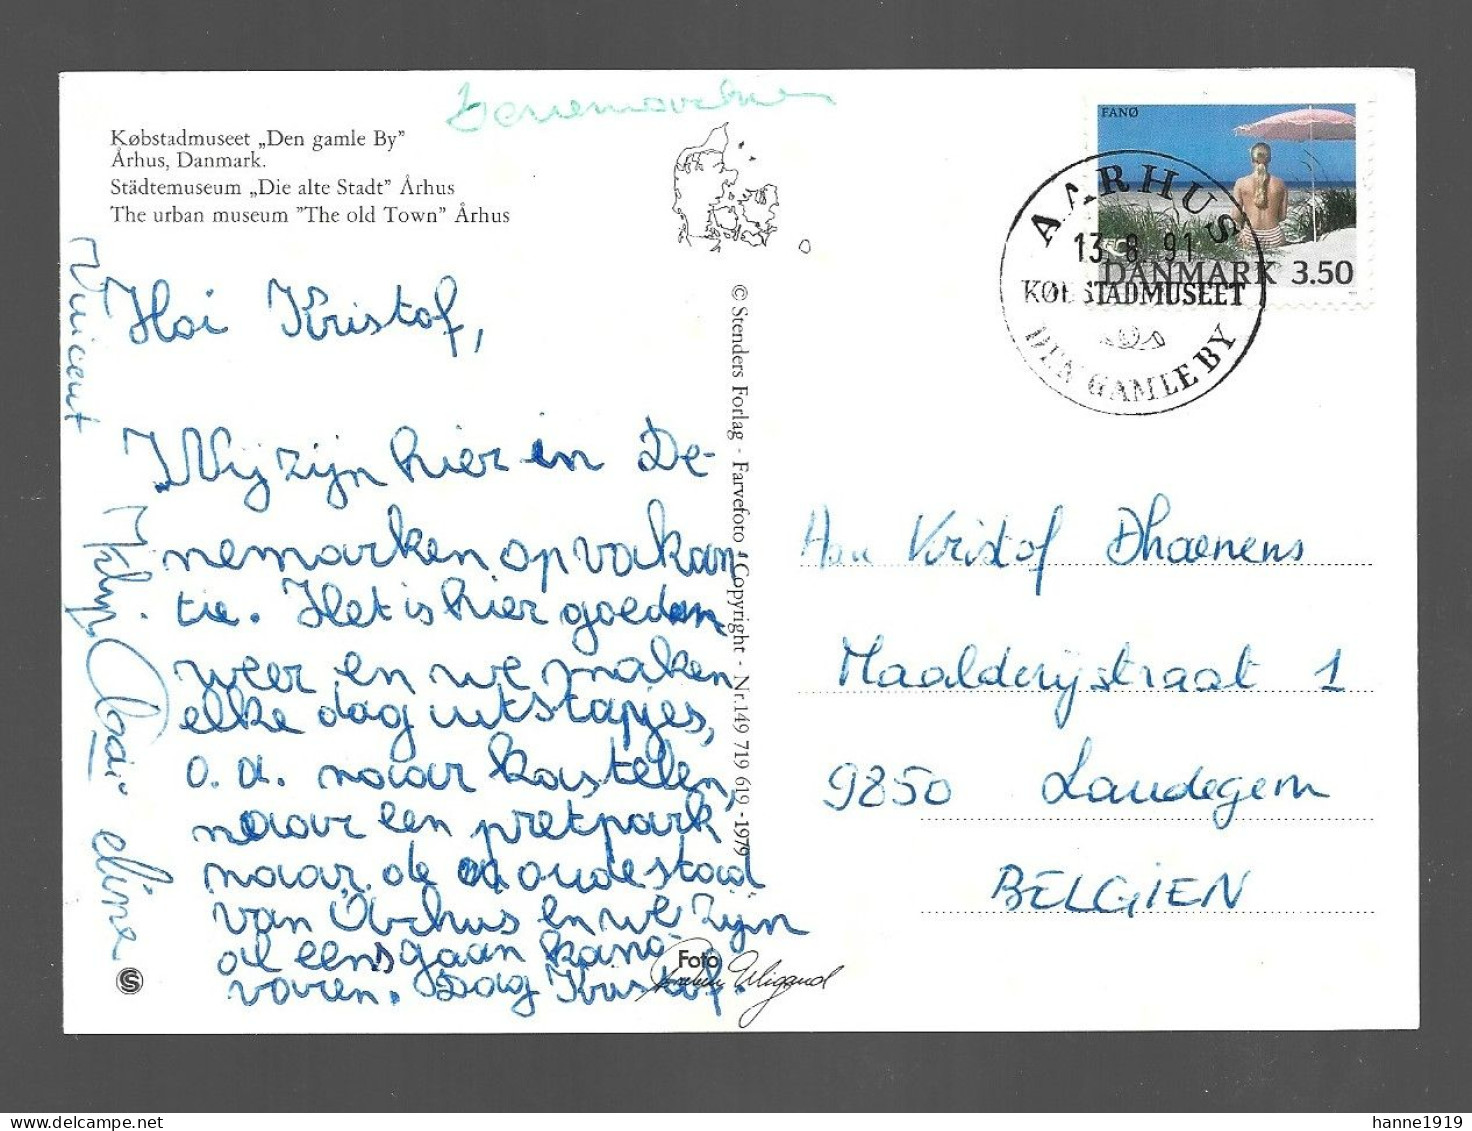 Denemarken
Købstadmuseet „Den gamle By”
Århus, Danmark.
Städtemuseum „Die alte Stadt” Århus
The urban museum ”The old Town” Århus
FANØ
DANMARK 3.50
AARHUS
13.8.91
KØBSTADMUSEET
DEN GAMLE BY
© Stenders Forlag - Farvefoto - Copyright - Nr. 149 719 619 - 1979
Hoi Kristof,
Wij zijn hier in De-
nemarken op vakan
tie. Het is hier goed
weer en we maken
elke dag uitstapjes,
o.a. naar kastelen,
naar een pretpark
naar de oude stad
van Århus en we zijn
al eens gaan kano-
varen. Dag Kristof.
Vincent
eline
Aan Kristof Dhaenens
Maalderijstraat 1
9850 Landegem
BELGIEN
Foto
Wigand
S
hanne1919